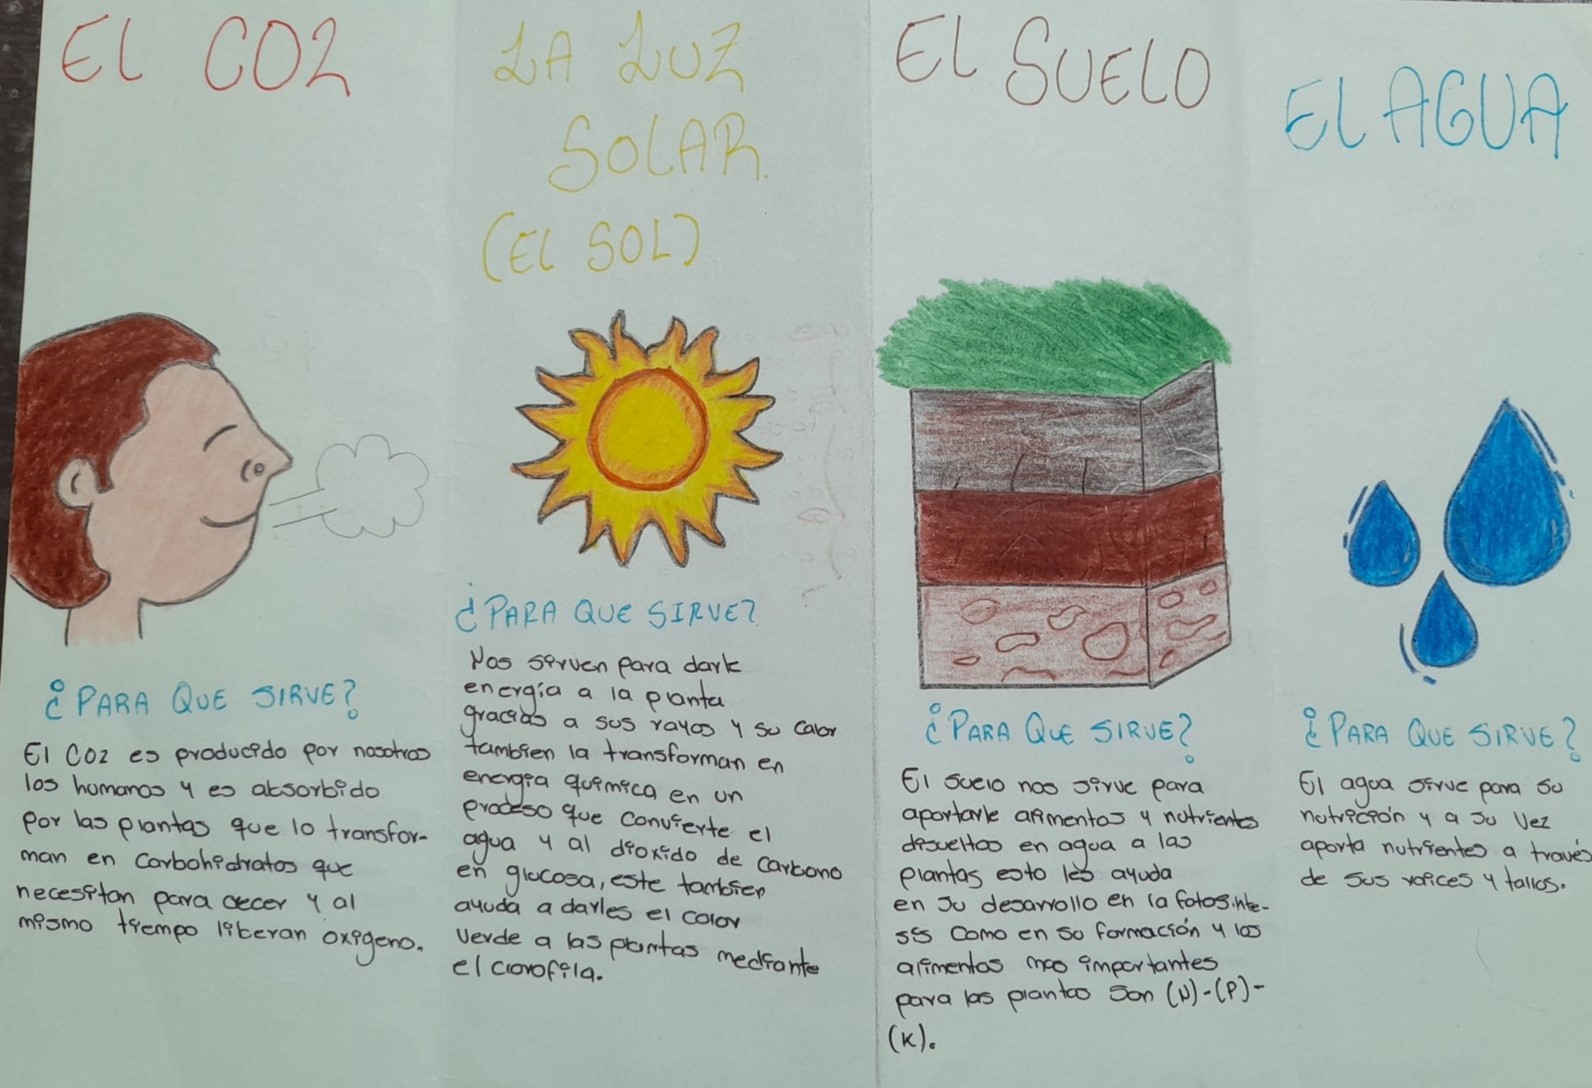 EL CO2
¿PARA QUE SIRVE?
El CO2 es producido por nosotros
los humanos y es absorbido
por las plantas que lo transfor-
man en Carbohidratos que
necesitan para crecer y al
mismo tiempo liberan oxigeno.
LA LUZ
SOLAR.
(EL SOL)
¿PARA QUE SIRVE?
Nos sirven para darle
energía a la planta
gracias a sus rayos y su calor
tambien la transforman en
energia quimica en un
proceso que convierte el
agua y al dioxido de carbono
en glucosa, este tambien
ayuda a darles el color
verde a las plantas mediante
el clorofila.
EL SUELO
¿PARA QUE SIRVE?
El suelo nos sirve para
aportarle alimentos y nutrientes
disueltos en agua a las
plantas esto les ayuda
en su desarrollo en la fotosinte-
sis como en su formación y los
alimentos mas importantes
para las plantas son (N)-(P)-
(K).
EL AGUA
¿PARA QUE SIRVE?
El agua sirve para su
nutrición y a su vez
aporta nutrientes a través
de sus raices y tallos.